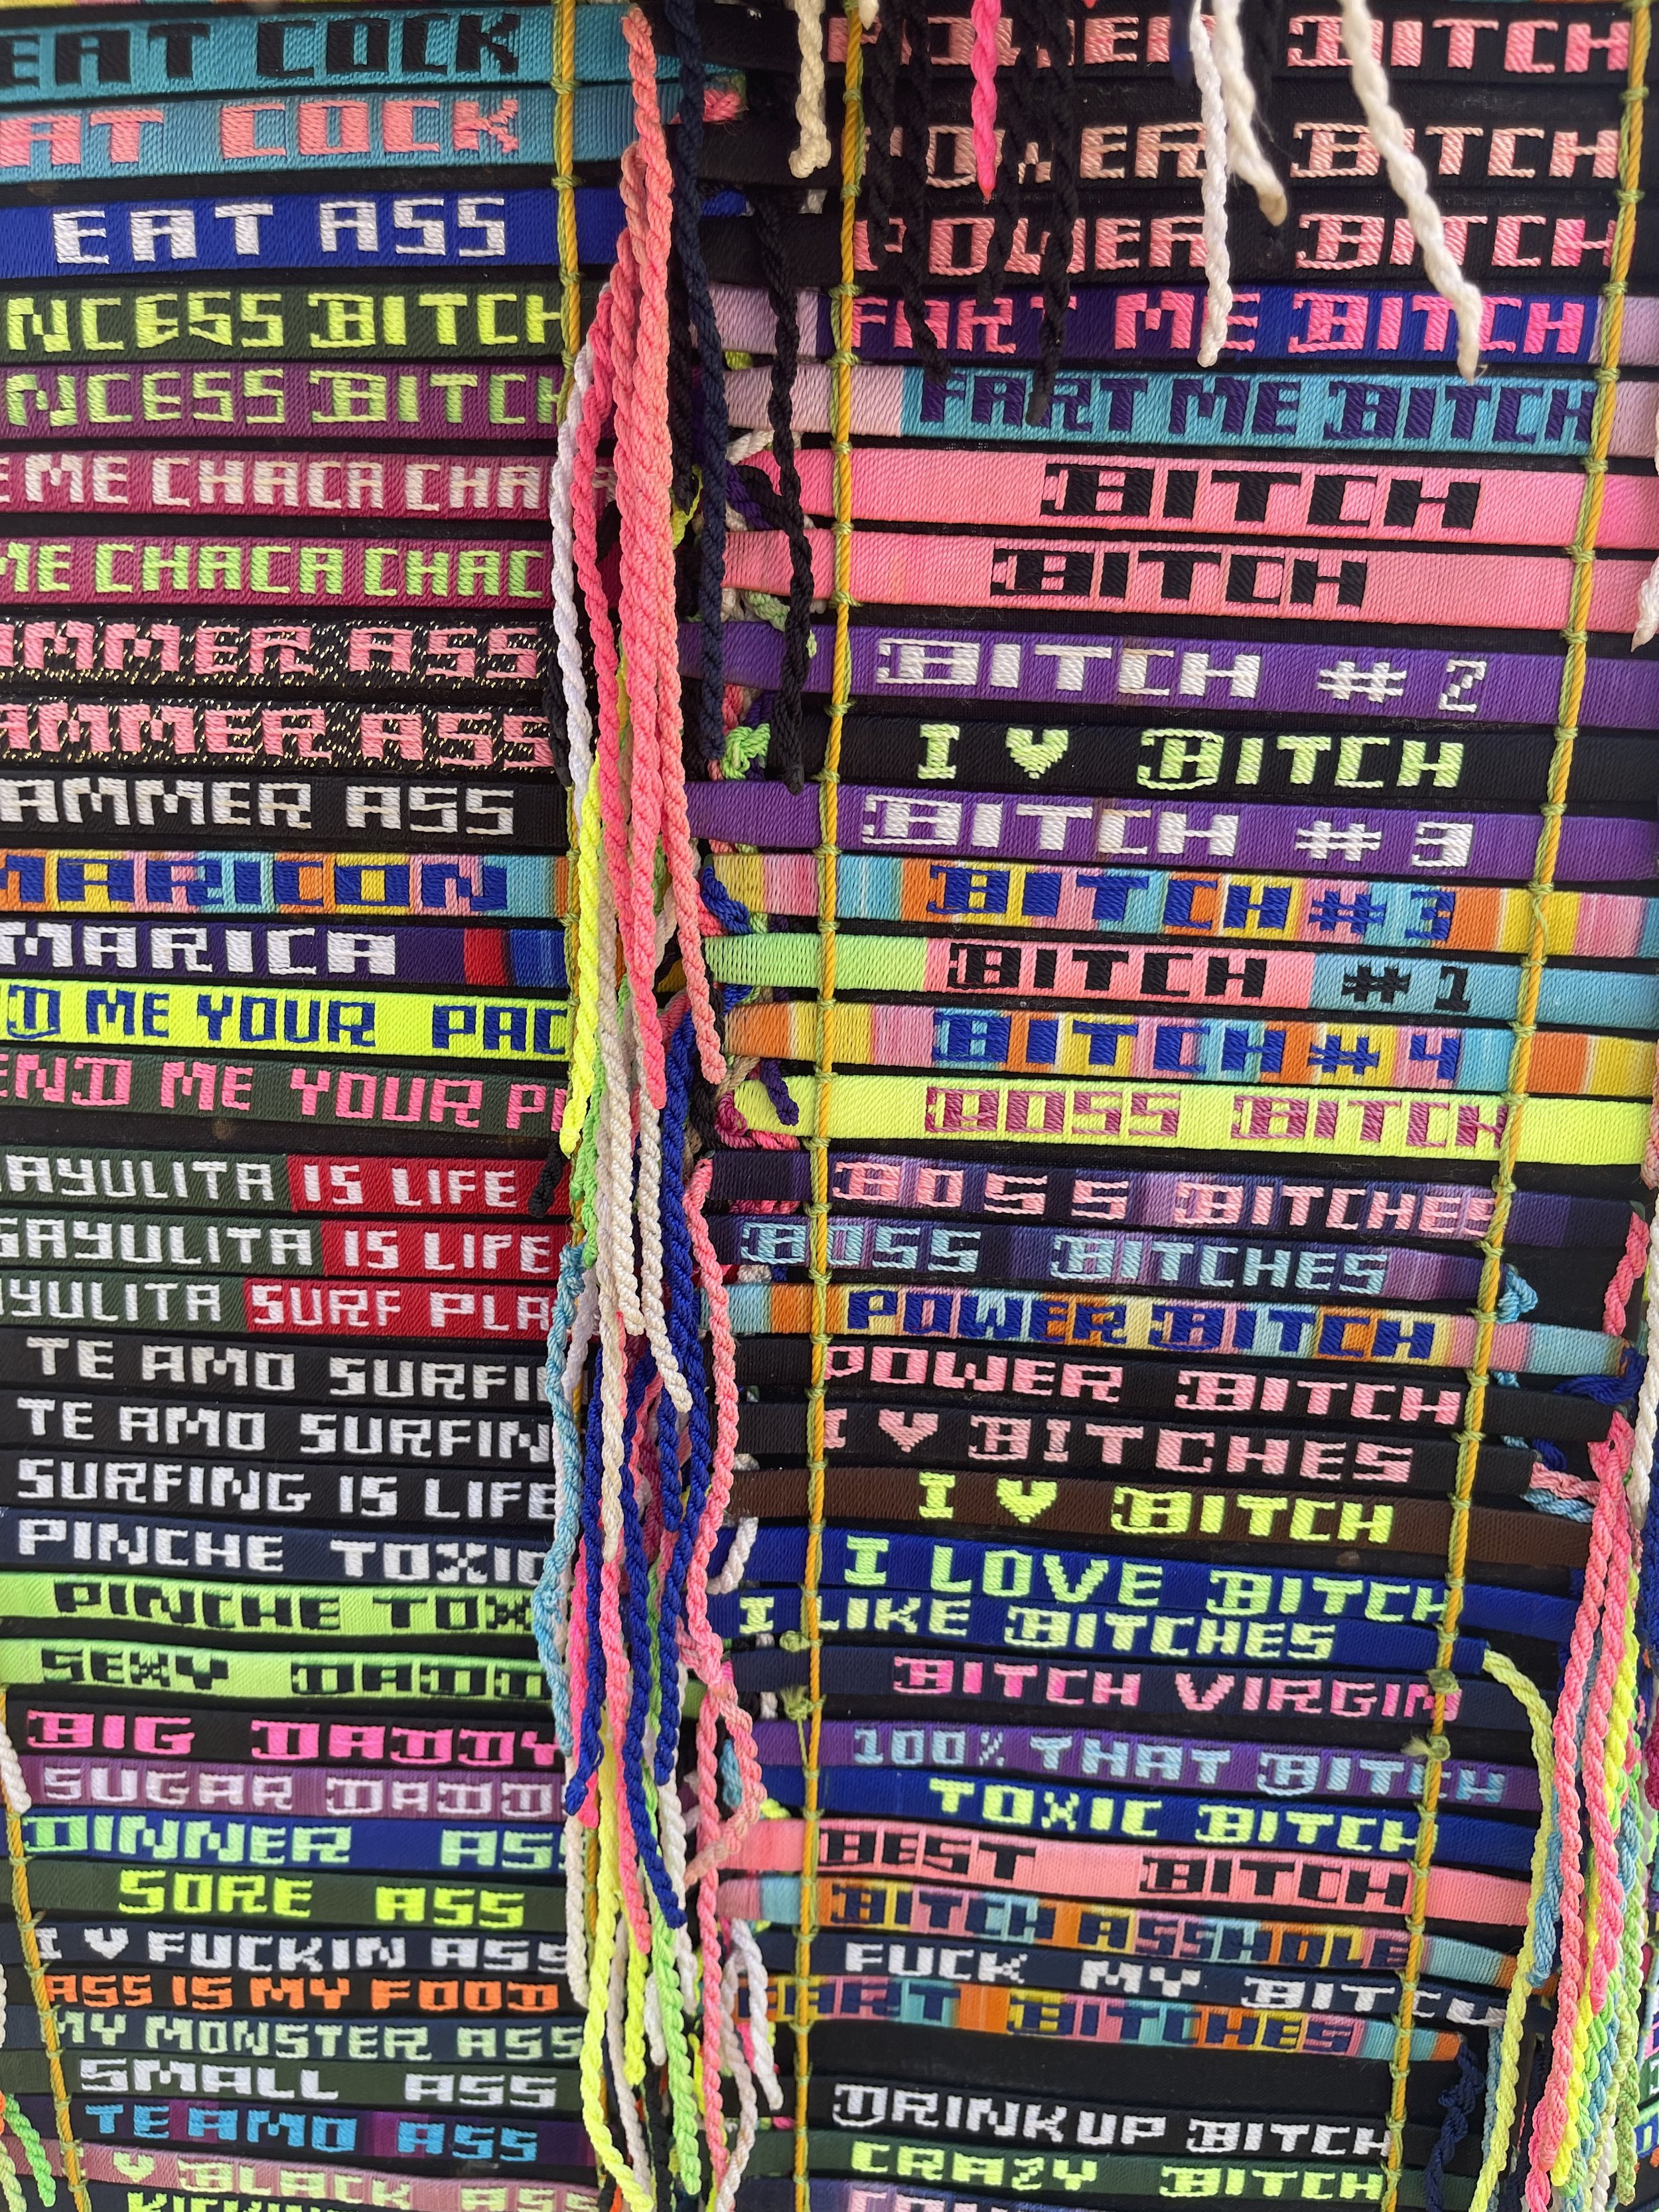 EAT COCK
AT COCK
EAT ASS
NCESS BITCH
NCESS BITCH
E ME CHACA CHACA
ME CHACA CHAC
AMMER ASS
AMMER ASS
AMMER ASS
MARICON
MARICA
D ME YOUR PAC
END ME YOUR PI
AYULITA IS LIFE
SAYULITA IS LIFE
AYULITA SURF PLA
TE AMO SURFIN
TE AMO SURFIN
SURFING IS LIFE
PINCHE TOXIC
PINCHE TOX
SEXY DADD
BIG DADDY
SUGAR DADD
DINNER ASS
SORE ASS
I ♥ FUCKIN ASS
ASS IS MY FOOD
MY MONSTER ASS
SMALL ASS
TE AMO ASS
♥ BLACK ASS
POWER BITCH
POWER BITCH
POWER BITCH
FART ME BITCH
FART ME BITCH
BITCH
BITCH
BITCH # 2
I ♥ BITCH
BITCH # 3
BITCH # 3
BITCH # 1
BITCH # 4
BOSS BITCH
BOSS BITCHES
BOSS BITCHES
POWER BITCH
POWER BITCH
I ♥ BITCHES
I ♥ BITCH
I LOVE BITCH
I LIKE BITCHES
BITCH VIRGIN
100% THAT BITCH
TOXIC BITCH
BEST BITCH
BITCH ASSHOLE
FUCK MY BITCH
FART BITCHES
DRINK UP BITCH
CRAZY BITCH